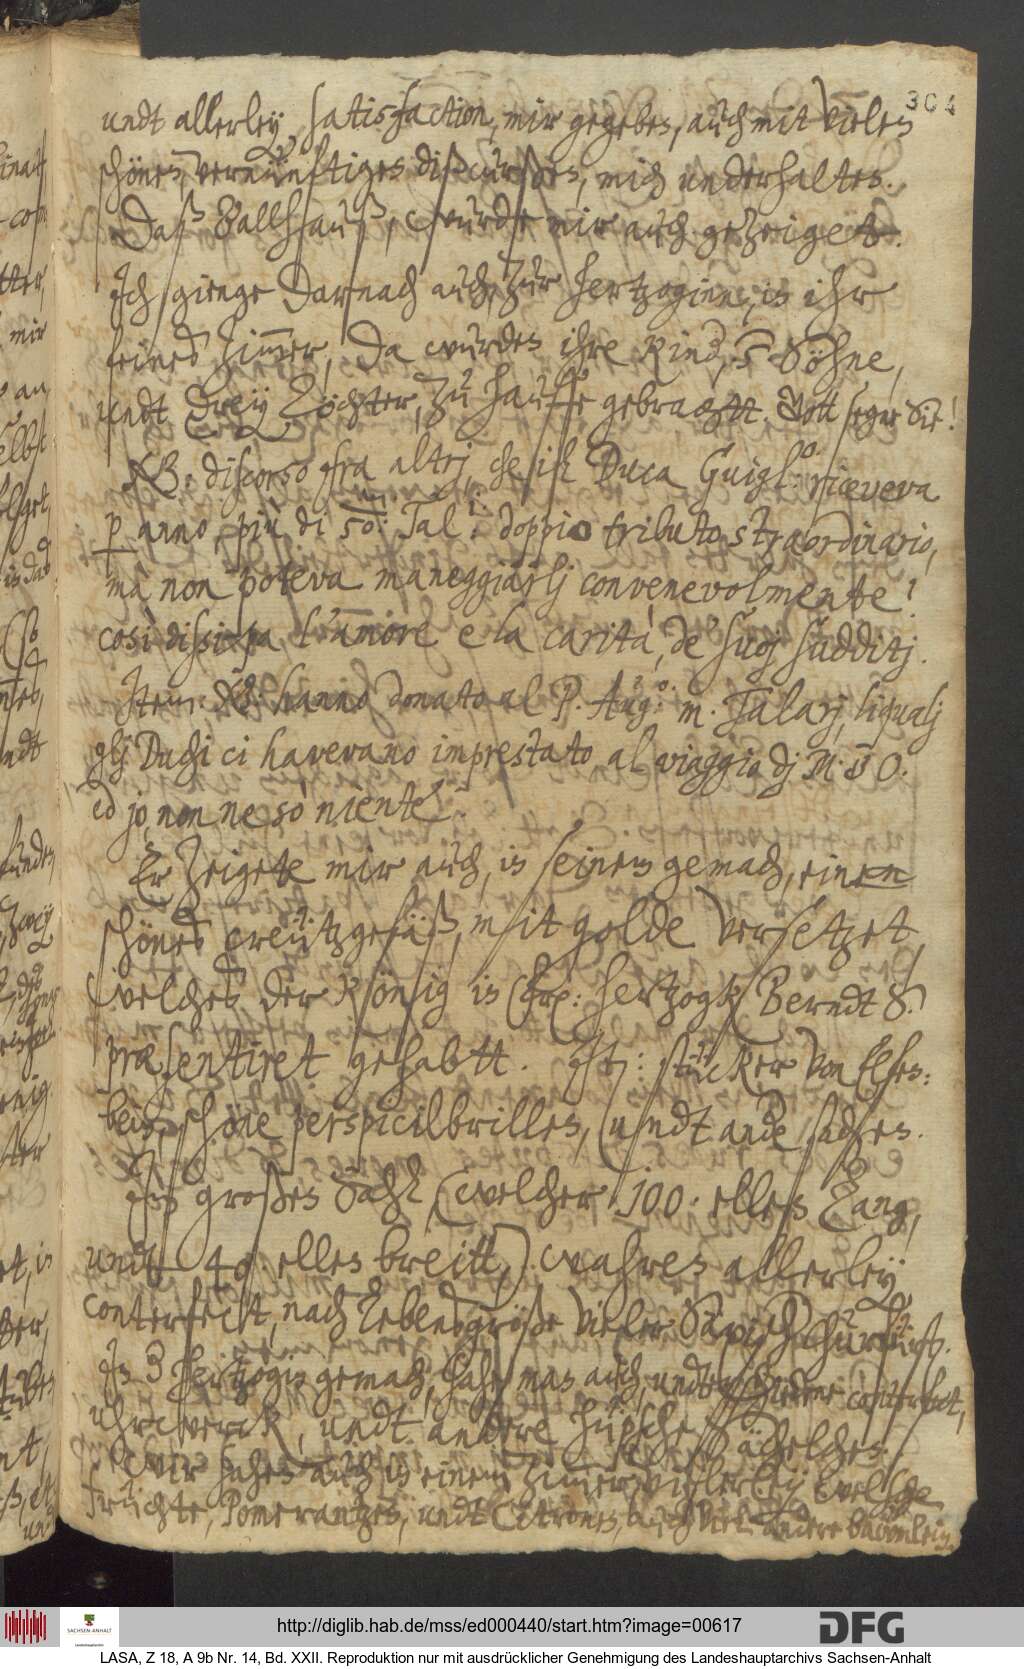 304
undt allerley, satisfaction, mir gegeben, auch mit vielen
schönen, vernünftigen dißcurßen, mich underhalten.
Daß Ballhauß, wurde mir auch gezeiget.
Ich gienge darnach auch, zur Hertzoginn, in ihr
feines zimmer, da wurden ihre Kind, 5 Söhne,
undt drey Töchter, zu hauffe gebrachtt. Gott segne Sie!
NB: discorso fra altrj, che il Duca Guigl:o riceveva
p anno, più di 50m: Tal:i doppio tributo straordinario,
mà non poteva maneggiarlj convenevolmente!
così dissipa l'amore e la carità, de' suoj sudditj.
Item: NB: hanno donato al P. Aug:o m. Talarj, liqualj
glj Duchi ci havevano imprestato al viaggio dj M. & O.
ed jo, non ne sò niente!
Er zeigete mir auch, in seinem gemach, einen
schönes creützgefäß, mit golde versetzet,
welches der König in Hertzogk Berndt S.
præsentiret gehabtt. It: stücker von Elfen:
bein, schöne perspicilbrillen, undt andre sachen.
Im großen Sahl, (welcher 100: ellen lang,
undt 40 ellen breitt,) wahren allerley
conterfect, nach Lebensgröße vieler
In Hertzogin gemach, sahe man auch, undterschiedene contrafect,
uhrwerck, undt andere hüpsche sächelchen.
Wir sahen auch in einem zimmer vielerley welsche
früchte, Pomerantzen, undt Citronen, auch viel andere bäumlein.
http://diglib.hab.de/mss/ed000440/start.htm?image=00617
SACHSEN-ANHALT
DFG
LASA, Z 18, A 9b Nr. 14, Bd. XXII. Reproduktion nur mit ausdrücklicher Genehmigung des Landeshauptarchivs Sachsen-Anhalt